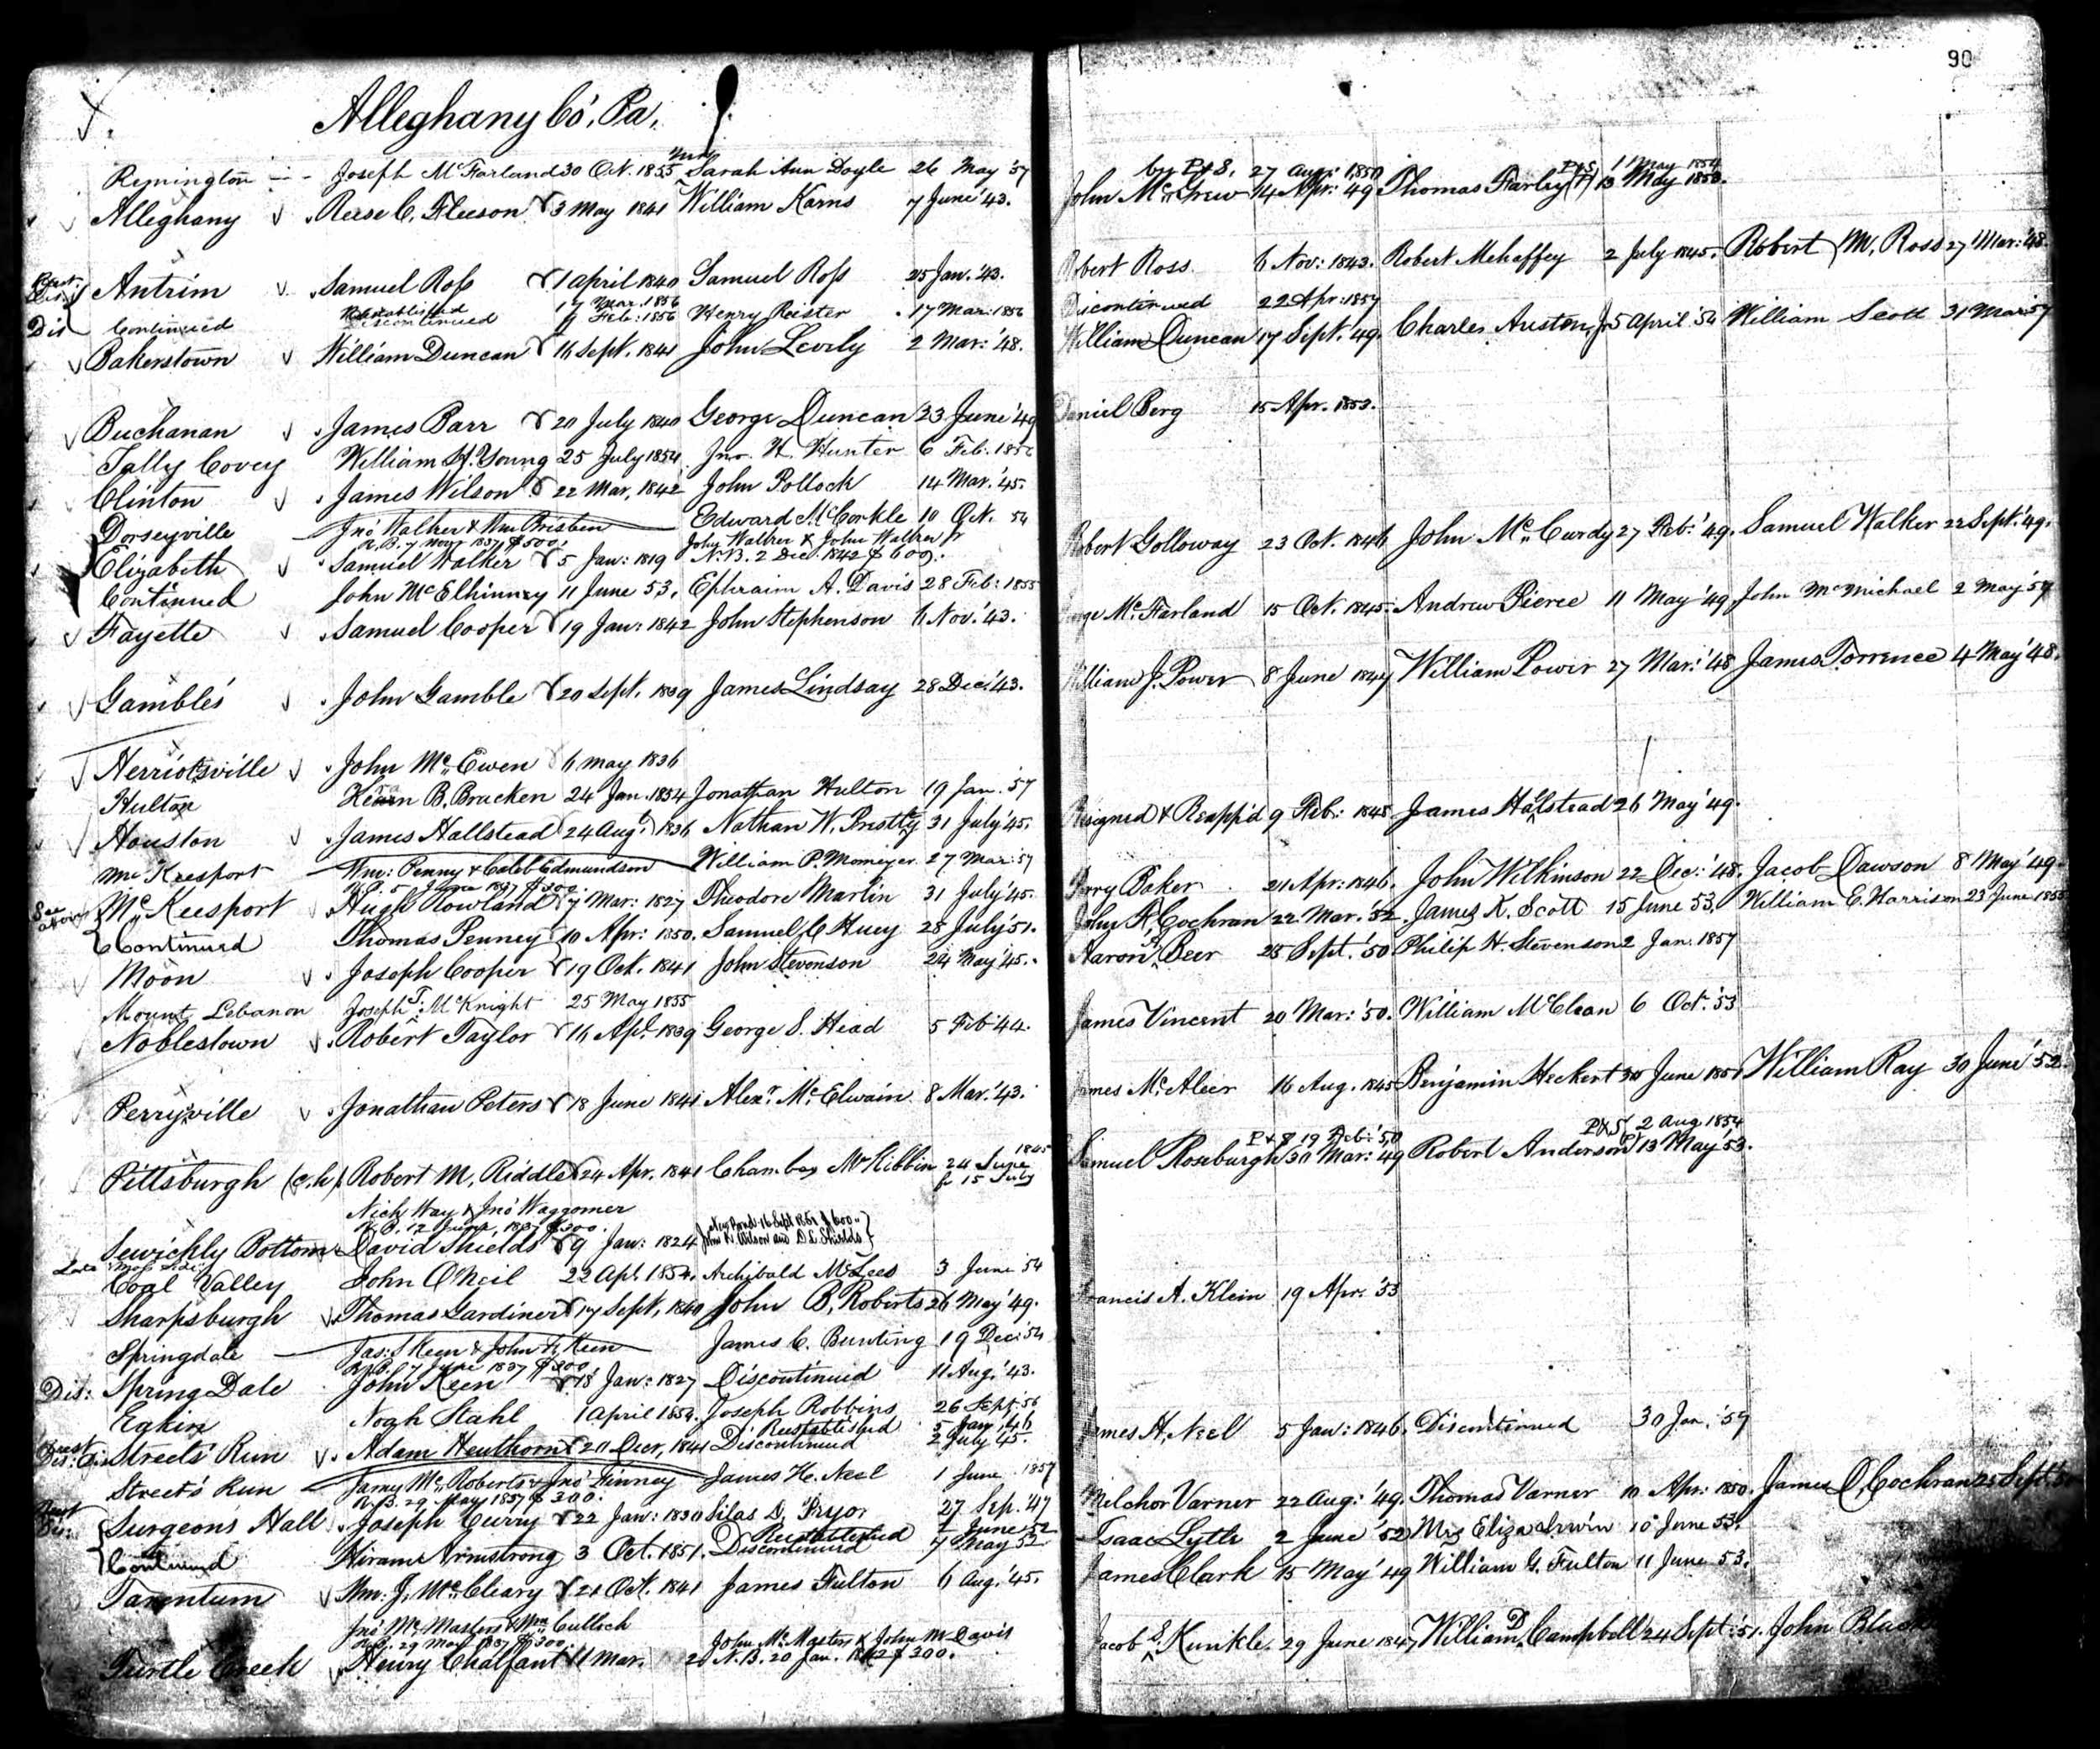 90
Alleghany Co. Pa.
Remington Joseph McFarland 30 Oct. 1855 Mrs Sarah Ann Doyle 26 May '57
by P&S. 27 Aug: 1850 P&S 1 May 1854
Alleghany Reese C. Fleeson 3 May 1841 William Karns 7 June '43. John McGrew 14 Apr: 49 Thomas Farley (P) 13 May 1853.
Antrim Samuel Ross 1 April 1840 Samuel Ross 25 Jan. '43. Robert Ross 6 Nov: 1843. Robert Mehaffey 2 July 1845. Robert M. Ross 27 Mar: '48
Reestablished 7 Mar. 1856
Dis Continued Discontinued Feb: 1856 Henry Reister 17 Mar: 1856 Discontinued 22 Apr: 1857
Bakerstown William Duncan 16 Sept. 1841 John Levily 2 Mar: '48. William Duncan 17 Sept. '49. Charles Auston, Jr 5 April '54 William Scott 31 Mar 57
Buchanan James Barr 20 July 1840 George Duncan 23 June '49 Daniel Berg 15 Apr. 1853.
Tally Covey William H. Young 25 July 1854 Jno. H. Hunter 6 Feb. 1856
Clinton James Wilson 22 Mar, 1842 John Pollock 14 Mar. '45.
Dorseyville Edward McCorkle 10 Oct. 54
Jno Walker & Wm Brisben
N.B. 7 May 1837 $500. John Walker & John Walker Jr
Elizabeth Samuel Walker 5 Jan: 1819 N.B. 2 Dec. 1842 $600. Robert Golloway 23 Oct. 1846 John McCurdy 27 Feb: '49. Samuel Walker 22 Sept. '49.
Continued John McElhinney 11 June 53. Ephraim A. Davis 28 Feb: 1855
Fayette Samuel Cooper 19 Jan: 1842 John Stephenson 6 Nov. '43. McFarland 15 Oct. 1845. Andrew Pierce 11 May '49 John McMichael 2 May '57
Gambles' John Gamble 20 Sept. 1839 James Lindsay 28 Dec. '43. William J. Power 8 June 1847 William Power 27 Mar: '48 James Torrence 4 May '48.
Herriotsville John McEwen 6 May 1836
Hulton B. Bracken 24 Jan. 1854 Jonathan Hulton 19 Jan. '57
Houston James Hallstead 24 Aug. 1836 Nathan W. Prestly 31 July '45. Resigned & Reapp'd 9 Feb: 1848 James Halstead 26 May '49.
McKeesport William P. Momeyer 27 Mar: 57
Wm: Penny & Caleb Edmundson
N.B. 5 June 1837 $300.
See above McKeesport Hugh Rowland 7 Mar: 1827 Theodore Martin 31 July '45. Perry Baker 21 Apr: 1846. John Wilkinson 22 Dec: '48. Jacob Dawson 8 May '49.
Continued Thomas Penney 10 Apr: 1850. Samuel C Huey 28 July '51. John F. Cochran 22 Mar. '52. James K. Scott 15 June 53. William E. Harrison 23 June 1855
Moon Joseph Cooper 19 Oct. 1841 John Stevenson 24 May '45. Aaron Beer 25 Sept. '50 Philip H. Stevenson 2 Jan. 1857
Mount Lebanon Joseph T. McKnight 25 May 1855
Noblestown Robert Taylor 16 Apl. 1839 George S. Head 5 Feb '44. James Vincent 20 Mar: '50. William McClean 6 Oct. '53
Perrysville Jonathan Peters 18 June 1841 Alexr. McElwain 8 Mar. '43. James McAleer 16 Aug. 1845 Benjamin Heckert June 1851 William Ray 30 June '52
1845 P&S 19 Feb: '50 P&S 2 Aug 1854
Pittsburgh (c.h.) Robert M. Riddle 24 Apr. 1841 Chambers McKibbin 24 June fr 15 July Samuel Roseburgh 30 Mar: 49 Robert Anderson (P) 13 May 53.
Nich Way & Jno Waggoner
N.B. 12 June, 1837 $300. New Bond 16 Sept 1851 $600
Sewickly Bottom David Shields 9 Jan: 1824 John K. Wilson and D. E. Shields
Coal Valley John O'Neil 22 Apl. 1854. Archibald McLees 3 June 54
Sharpsburgh Thomas Gardiner 17 Sept, 1840 John B. Roberts 26 May '49. Francis A. Klein 19 Apr. '53
Springdale James C. Bunting 19 Dec: 54
Jas: Keen & John F. Keen
N.B. 7 June 1837 $300
Dis: Spring Dale John Keen 18 Jan: 1827 Discontinued 11 Aug. '43.
Eakin Noah Stahl 1 April 1854. Joseph Robbins 26 Sept. 56
Reestablished 5 Jan. 46
Streets' Run Adam Heuthorn 20 Decr, 1841 Discontinued 2 July '45. James H. Neel 5 Jan: 1846. Discontinued 30 Jan. '57
Street's Run James H. Neel 1 June 1857
James McRoberts & Jno Finney
N.B. 29 May 1837 $300.
Surgeons Hall Joseph Curry 22 Jan: 1830 Silas D. Pryor 27 Sep. '47 Melchor Varner 22 Aug: '49. Thomas Varner 10 Apr: 1850. James O. Cochran 25 Sept.
Reestablished 2 June 52
Continued Hiram Armstrong 3 Oct. 1851. Discontinued 7 May 52 Isaac Lytle 2 June '52 Mrs Eliza Irwin 10 June 53.
Tarentum Wm: J. McCleary 21 Oct. 1841 James Fulton 6 Aug. '45. James Clark 15 May '49 William G. Fulton 11 June 53.
Jno McMasters & Wm Culloch
N.B. 29 May 1837 $300. John McMasters & John M Davis
Turtle Creek Henry Chalfant 11 Mar. N.B. 20 Jan. 1842 $300. Jacob S. Kunkle. 29 June 1847 William D. Campbell 24 Sept: '51. John